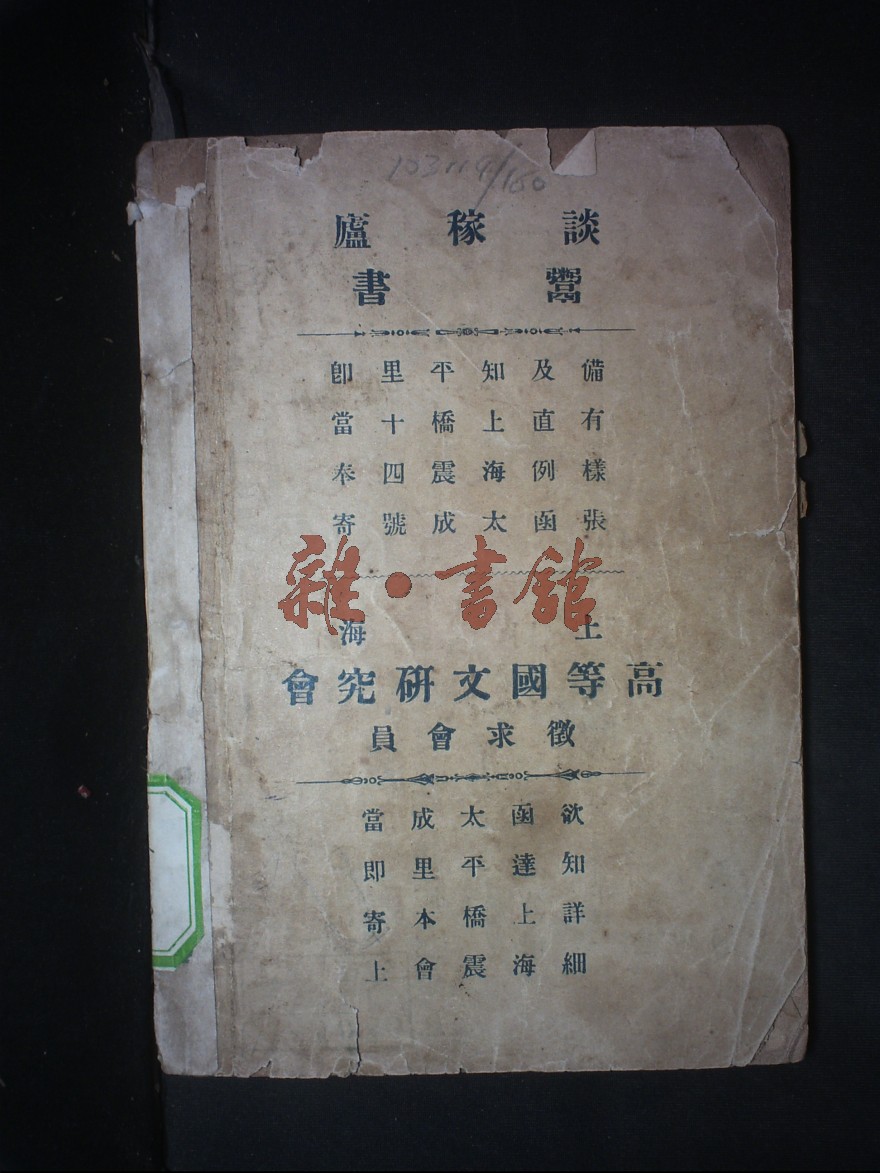 103119/180
談稼廬
鬻書
備有樣張
及直例函
知上海太
平橋震成
里十四號
即當奉寄
雜·書館
上海
高等國文研究會
徵求會員
欲知詳細
函達上海
太平橋震
成里本會
當即寄上